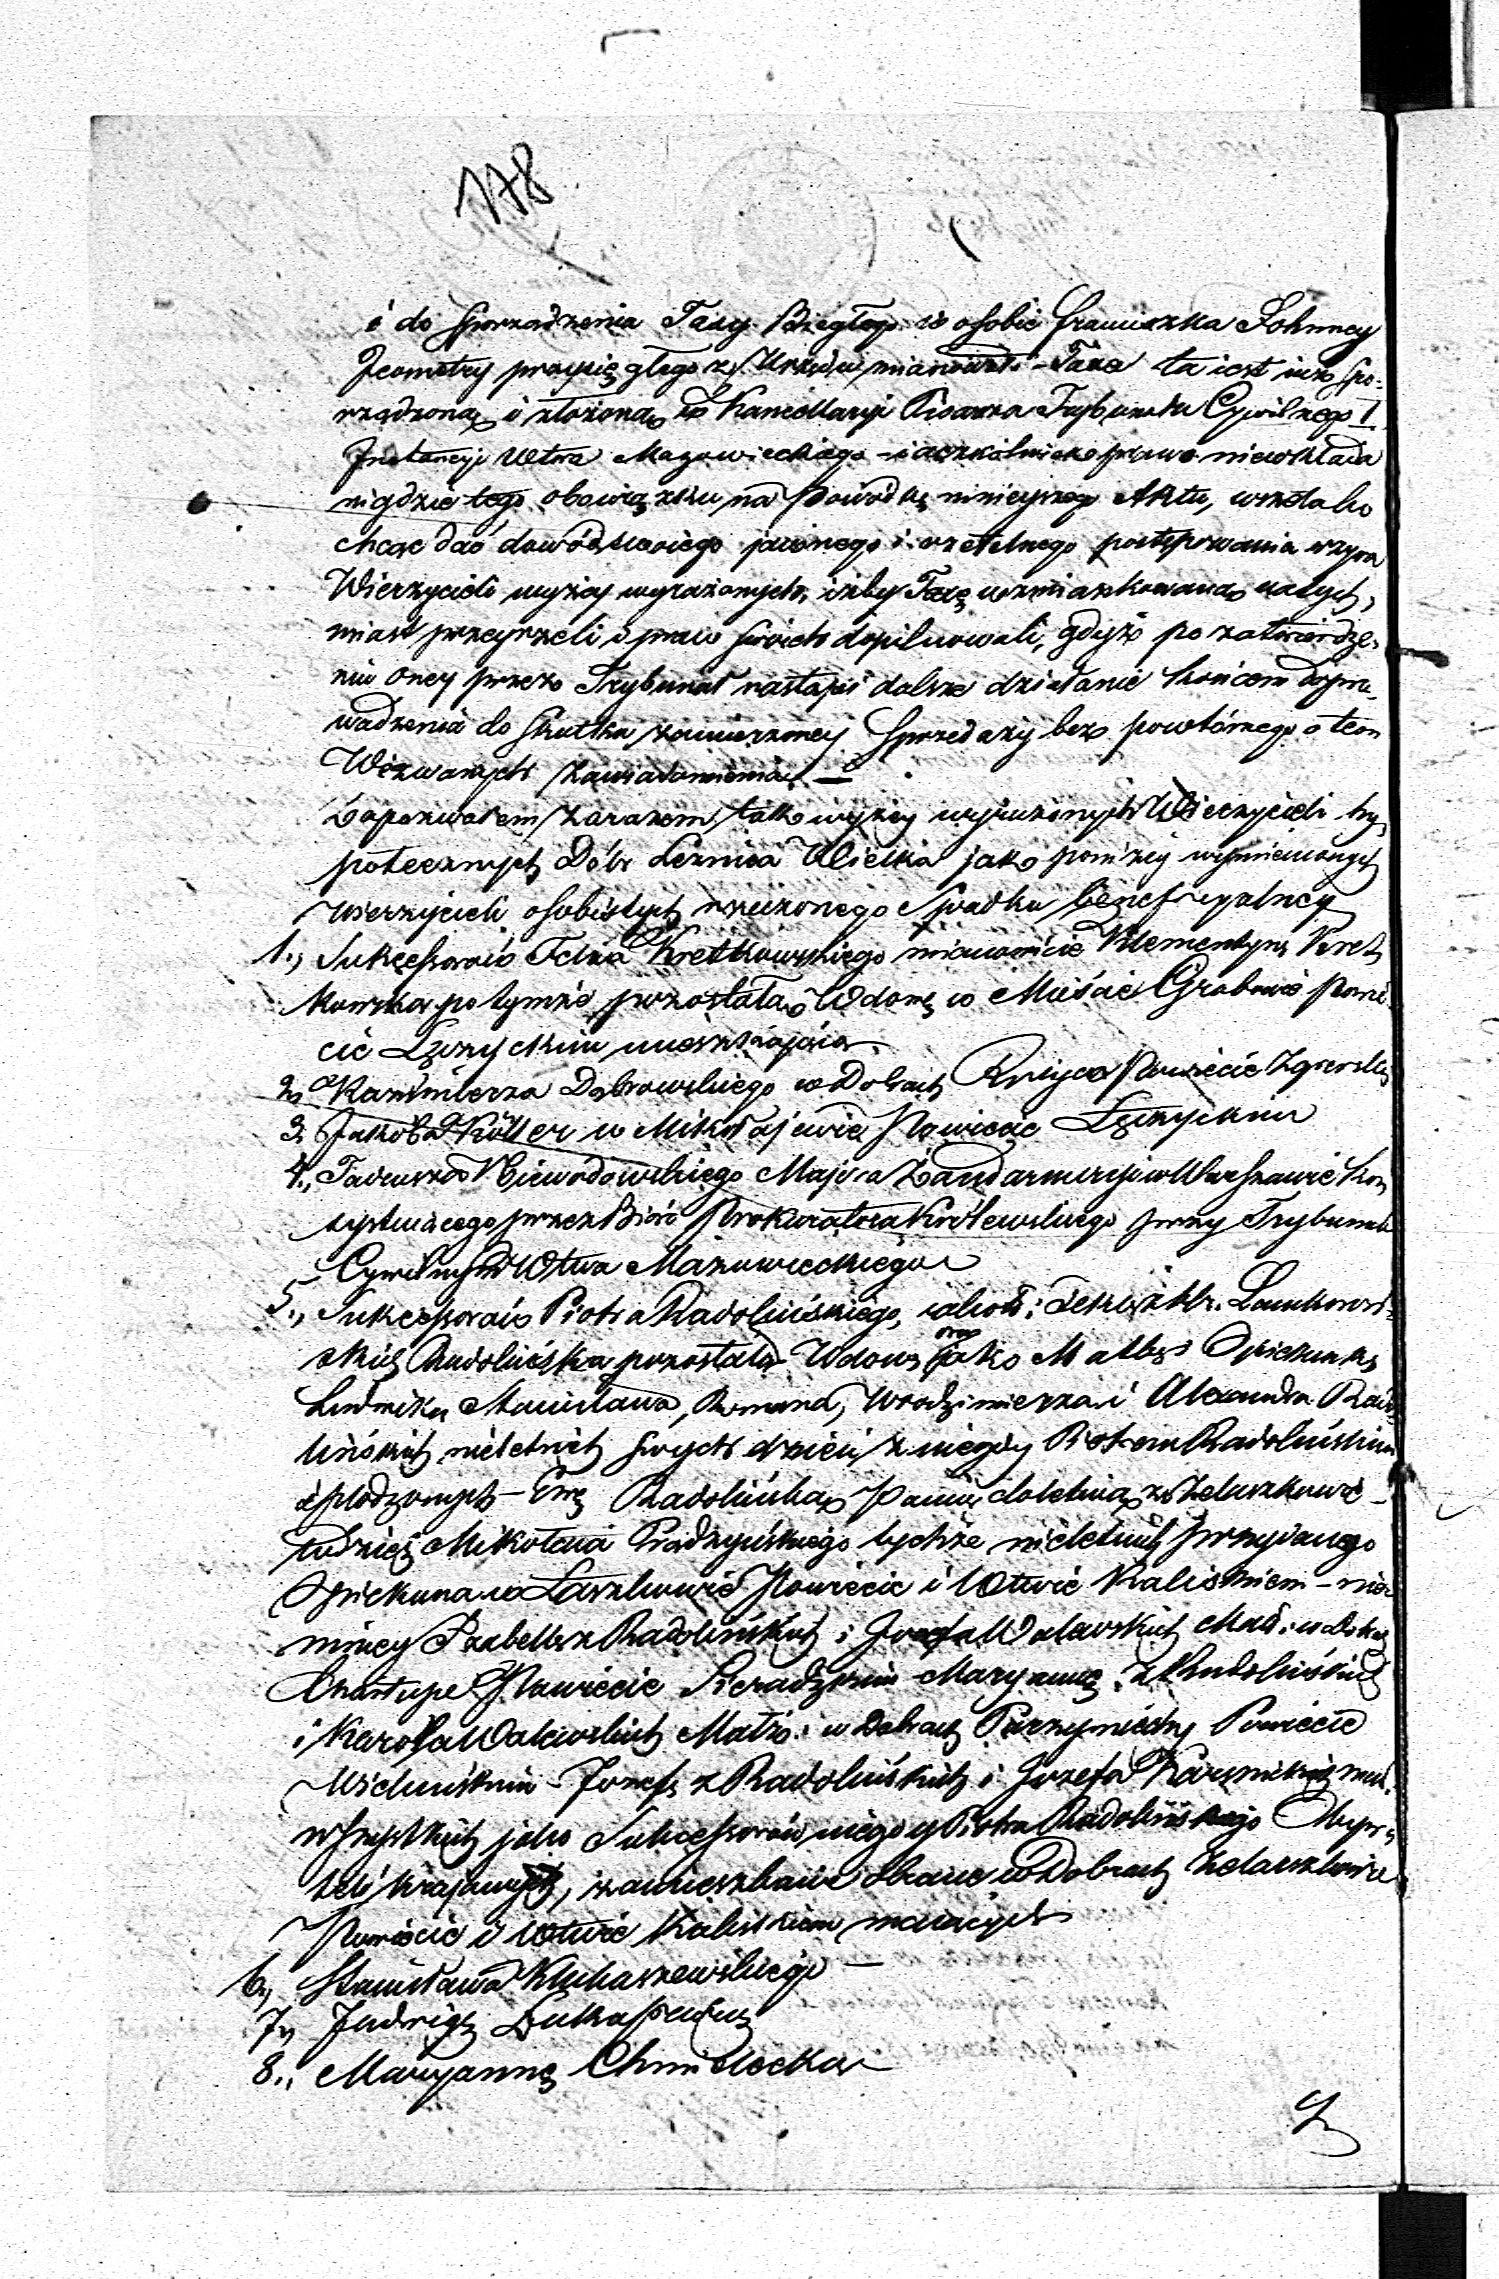 178
i do sporządzenia Taxy Biegłego w osobie Franciszka
Jeometry przysięgłego z Urzędu mianował – Taxa ta iest iuż spo-
rządzoną i złożoną w Kancellaryi Pisarza Trybunału Cywilnego I
Instancyi Wtwa Mazowieckiego – i aczkolwiek prawo niewkłada
nigdzie tego obowiązku na Powódkę ninieyszego Aktu, wszelako
chcąc dać dowód swoiego jawnego i rzetelnego postępowania wzywa
Wierzycieli wyżey wyrażonych, iżby Taxę wzmiankowaną natych-
miast przeyrzeli i praw swoich dopilnowali, gdyż po zatwierdze-
niu oney przez Trybunał nastąpi dalsze działanie końcem dopro-
wadzenia do skutku zamierzoney Sprzedaży bez powtórnego o tem
Wezwanych zawiadomienia —
Zapozwałem zarazem tak wyżey wyrażonych Wierzycieli hy-
potecznych Dóbr Leźnica Wielka jako poniżey wymienionych
Wierzycieli osobistych rzeczonego Spadku beneficyalney
1., Sukcessorów Felixa Kretkowskiego mianowicie Klementynę Kret-
kowską po tymże pozostałą Wdowę w Mieście Grabowie Powie-
cie Łęczyckim mieszkającą
2, Kazimierza Dąbrowskiego w Dobrach Powiecie Zgierskim
3, Jakóba w Mikołajewie Powiecie Łęczyckim
4., Tadeusza Niewodowskiego Majora Żandarmeryi w Warszawie kon-
systuiącego przez Biuro Prokuratora Królewskiego przy Trybunale
Cywilnym Wtwa Mazowieckiego
5., Sukcessorów Piotra Radolińskiego, iakoto:
Radolińską pozostałą Wdowę oraz jako Matkę Opiekunkę
Ludwika Stanisława, Romana, Włodzimierza i Alexandra Rado-
lińskich nieletnich swych dzieci z niegdy Piotrem Radolińskim
spłodzonych – Ewę Radolińską Pannę doletnią w Żelaszkowie –
tudzież Mikołaia Prądzyńskiego tychże nieletnich przydanego
Opiekuna w Powiecie i Wtwie Kaliskiem – nie-
mniey Izabellę z Radolińskich i Józefa Walewskich Małż: w Dobrach
Powiecie Sieradzkim – Maryannę z Radolińskich
i Karola Walewskich Małż: w Dobrach Powiecie
Wieluńskim – Józefę z Radolińskich i Józefa Małż.
wszystkich jako Sukcessorów niegdy Piotra Radolińskiego Obywa-
teli krajowych, zamieszkanie obrane w Dobrach Żelaszkowie
Powiecie i Wtwie Kaliskiem maiących
6, Stanisława Klukaszewskiego —
7, Jadwigę
8., Maryannę Chmielecką